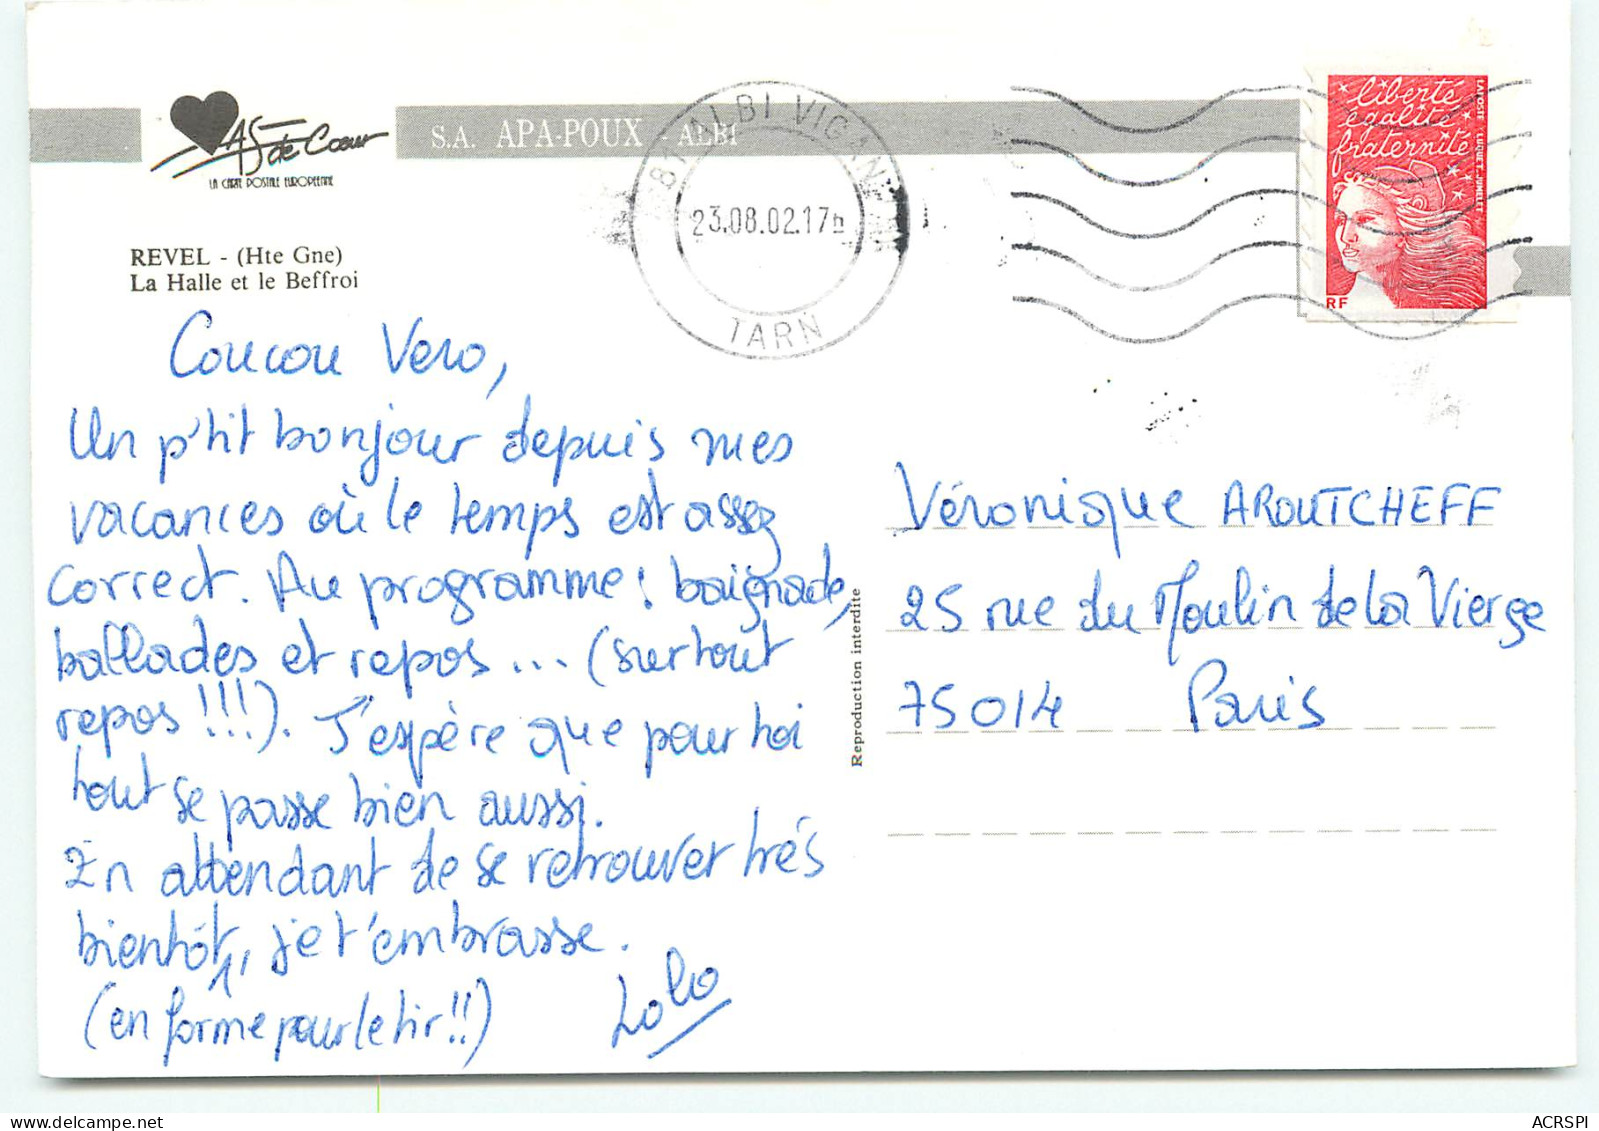 As de Cœur
LA CARTE POSTALE EUROPEENNE
S.A. APA-POUX - ALBI
81 ALBI VIGAN
23.08.02.17h
TARN
liberté
égalité
fraternité
LA POSTE LUQUET_JUMELET
RF
REVEL - (Hte Gne)
La Halle et le Beffroi
Coucou Vero,
Un p'tit bonjour depuis mes
vacances où le temps est assez
correct. Au programme : baignade,
ballades et repos ... (surtout
repos !!!). J'espère que pour toi
tout se passe bien aussi.
En attendant de se retrouver très
bientôt, je t'embrasse.
(en forme pour le tir !!)
Lolo
Reproduction interdite
Véronique AROUTCHEFF
25 rue du Moulin de la Vierge
75014 Paris
ACRSPI